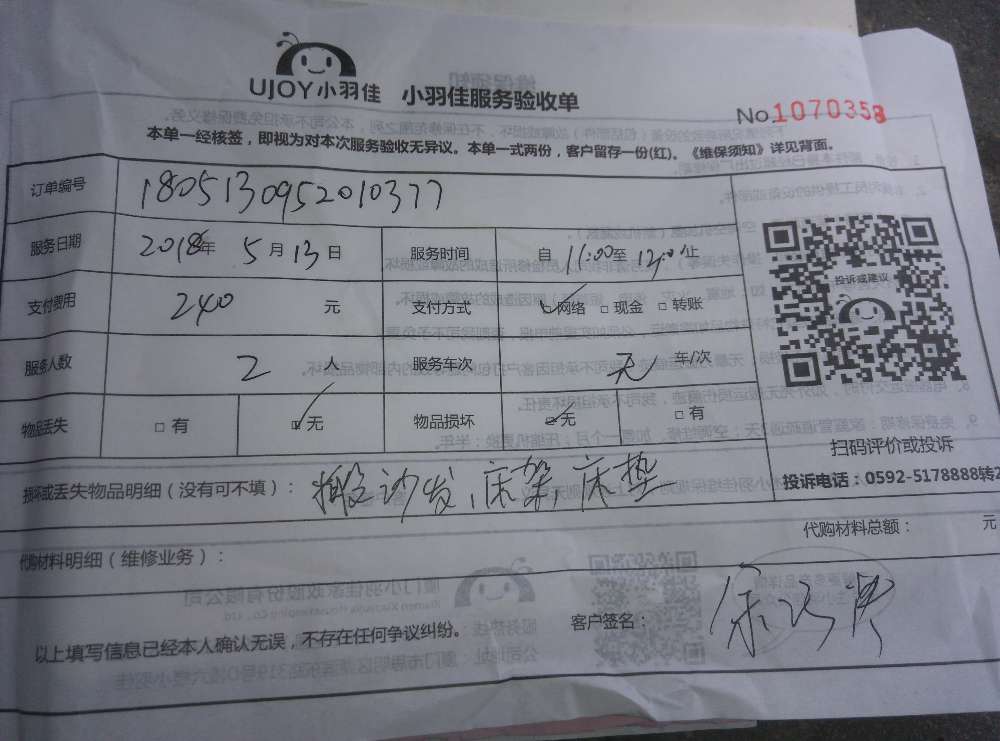 UJOY小羽佳 小羽佳服务验收单
No.1070358
本单一经核签，即视为对本次服务验收无异议。本单一式两份，客户留存一份(红)。《维保须知》详见背面。
订单编号 1805130952010377
服务日期 2018年 5月13日 服务时间 自11:00至12:0止
支付费用 240 元 支付方式 □网络 □现金 □转账
服务人数 2 人 服务车次 无 车/次
物品丢失 □有 □无 物品损坏 □无 □有
损坏或丢失物品明细（没有可不填）： 搬沙发、床架,床垫
投诉或建议
扫码评价或投诉
投诉电话：0592-5178888转2
代购材料总额： 元
代购材料明细（维修业务）：
以上填写信息已经本人确认无误，不存在任何争议纠纷。 客户签名：